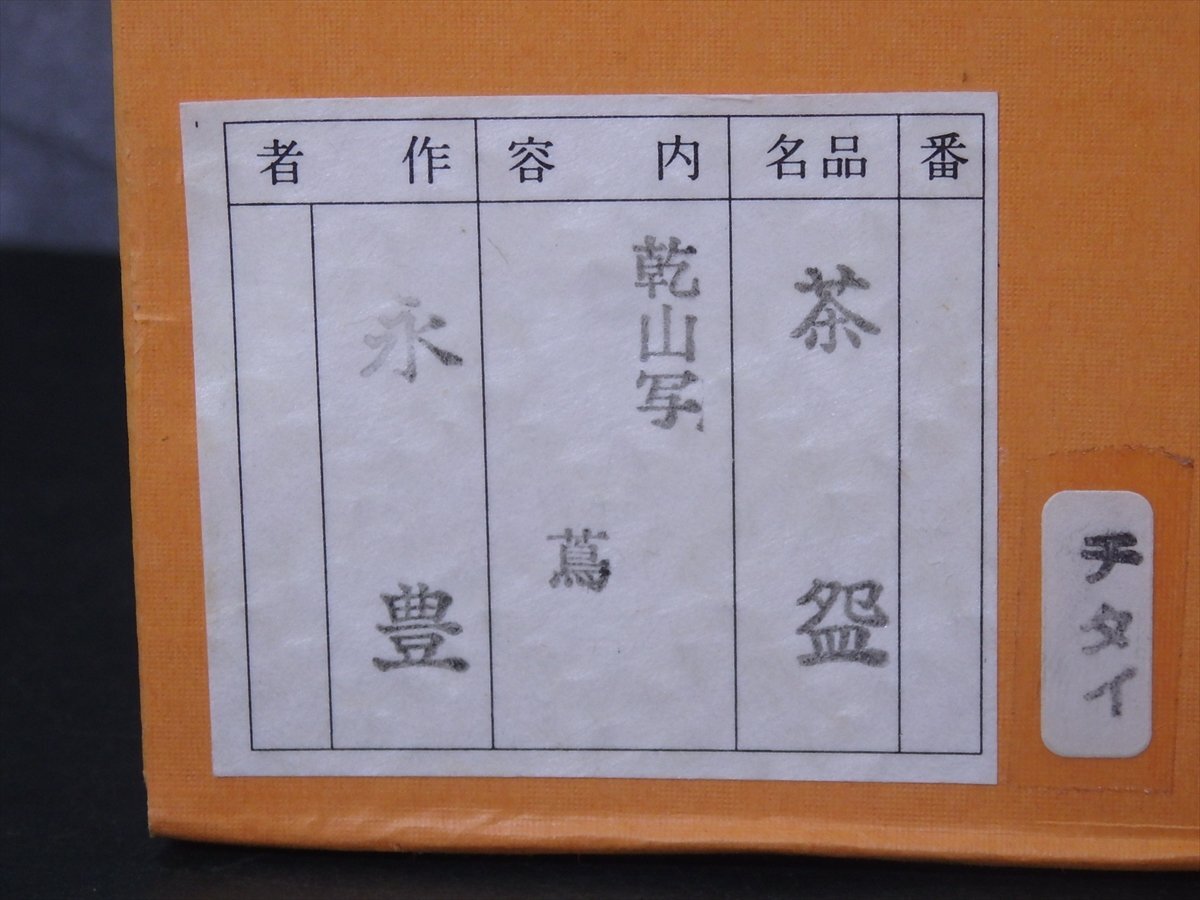 番
品名
内容
作者
茶盌
乾山写
蔦
永豊
チタイ